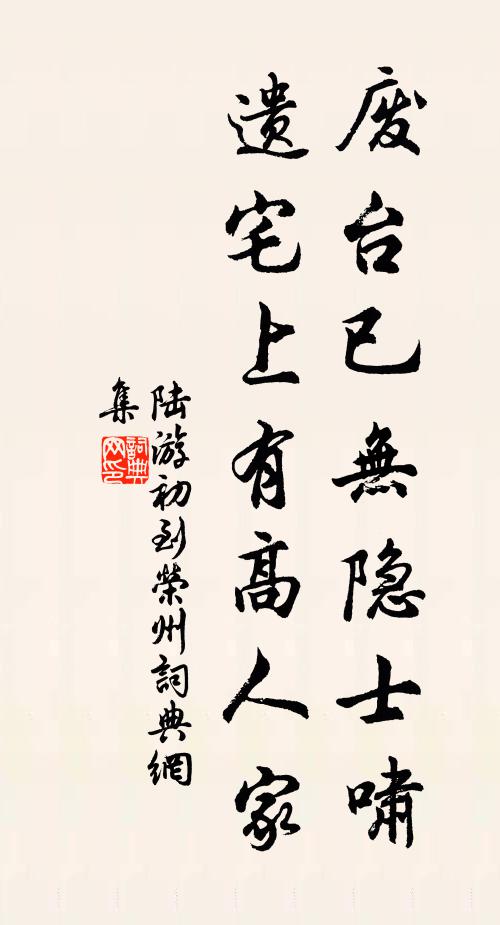 废台已無隐士嘯
遗宅上有高人家
陆游初到榮州詞典網
集
詞典网印